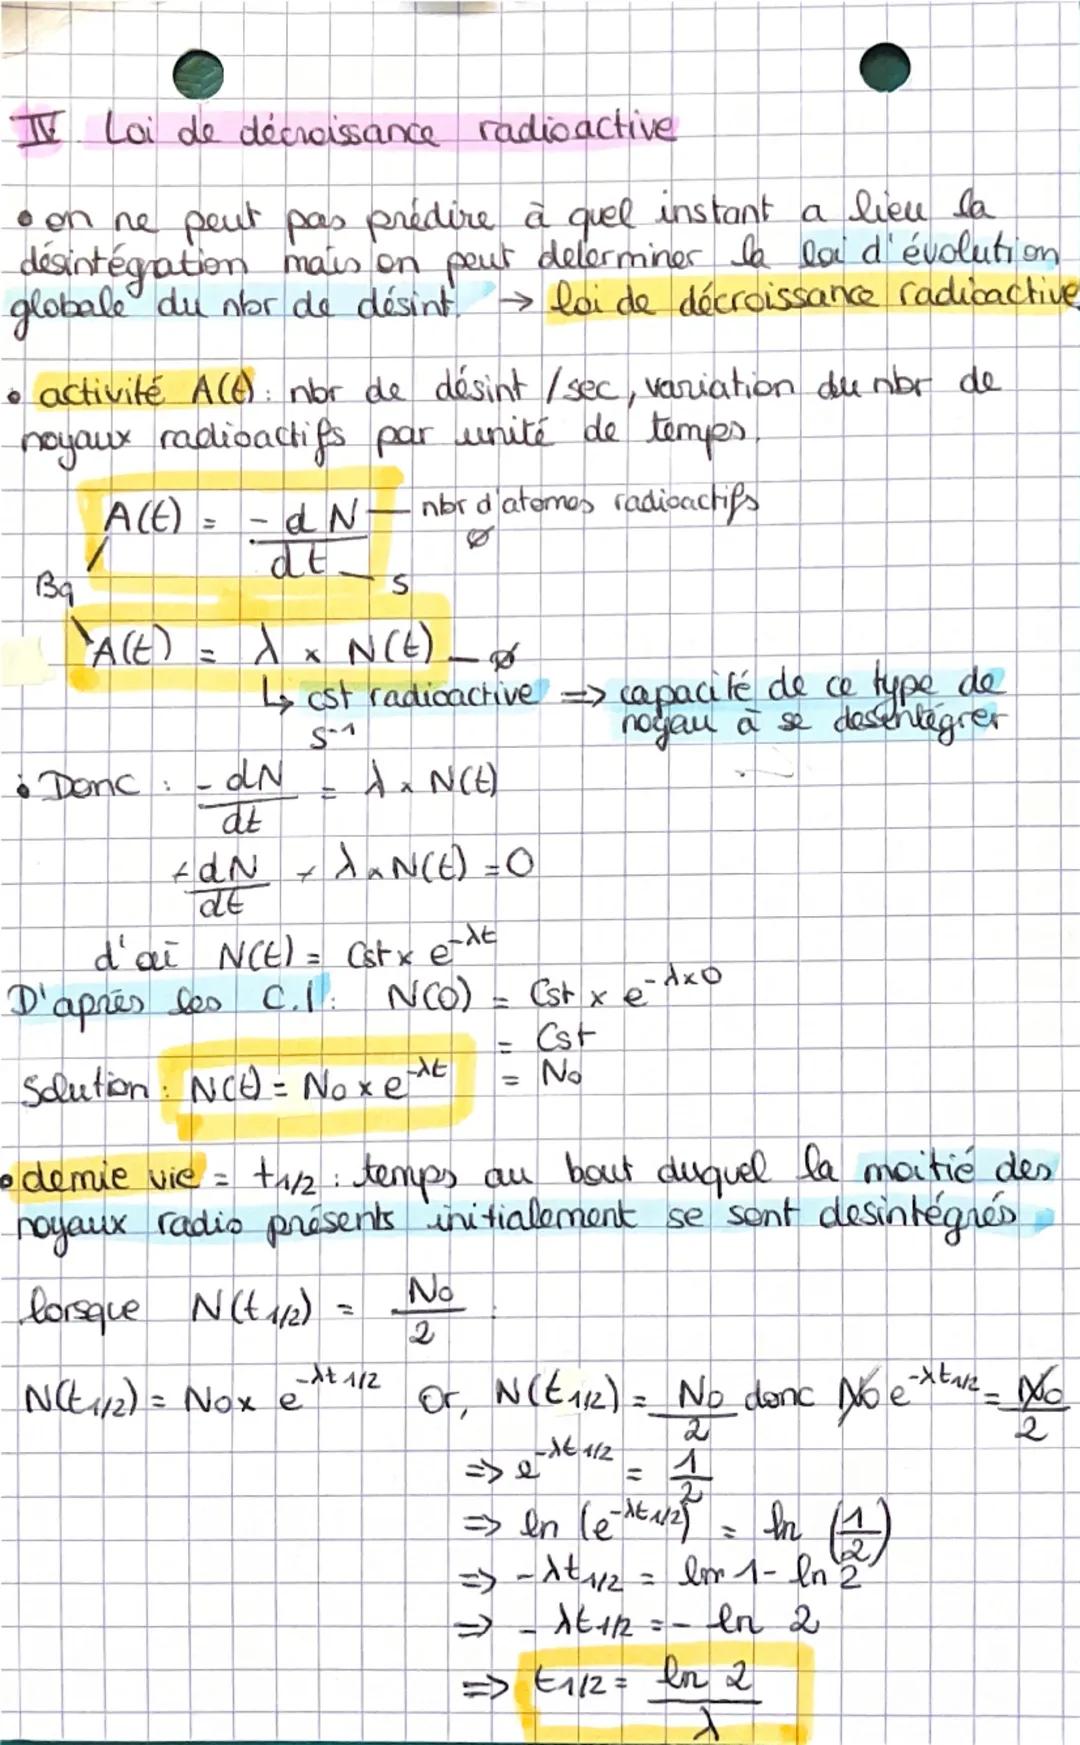 IV Loi de décroissance radioactive
• on ne peut pas prédire à quel instant a lieu la
désintégration mais on peut determiner la loi d'évolution
globale du nbr de désint. → loi de décroissance radioactive
• activité A(t) : nbr de désint / sec, variation du nbr de
noyaux radioactifs par unité de temps.
A(t) = - dN/dt — nbr d'atomes radioactifs ∅
Bq
s
A(t) = λ × N(t) — ∅
↳ cst radioactive => capacité de ce type de
s⁻¹ noyau à se desentégrer
• Donc : - dN/dt = λ × N(t)
+ dN/dt + λ × N(t) = 0
d'où N(t) = Cst × e^-λt
D'après les C.I : N(0) = Cst × e^-λ×0
= Cst
= N0
Solution : N(t) = N0 × e^-λt
• demie vie = t1/2 : temps au bout duquel la moitié des
noyaux radio présents initialement se sont desintégrés
lorsque N(t1/2) = N0/2 :
N(t1/2) = N0 × e^-λt1/2 Or, N(t1/2) = N0/2 donc N0 e^-λt1/2 = N0/2
=> e^-λt1/2 = 1/2
=> ln (e^-λt1/2) = ln (1/2)
=> -λt1/2 = ln 1 - ln 2
=> - λt1/2 = - ln 2
=> t1/2 = ln 2/λ